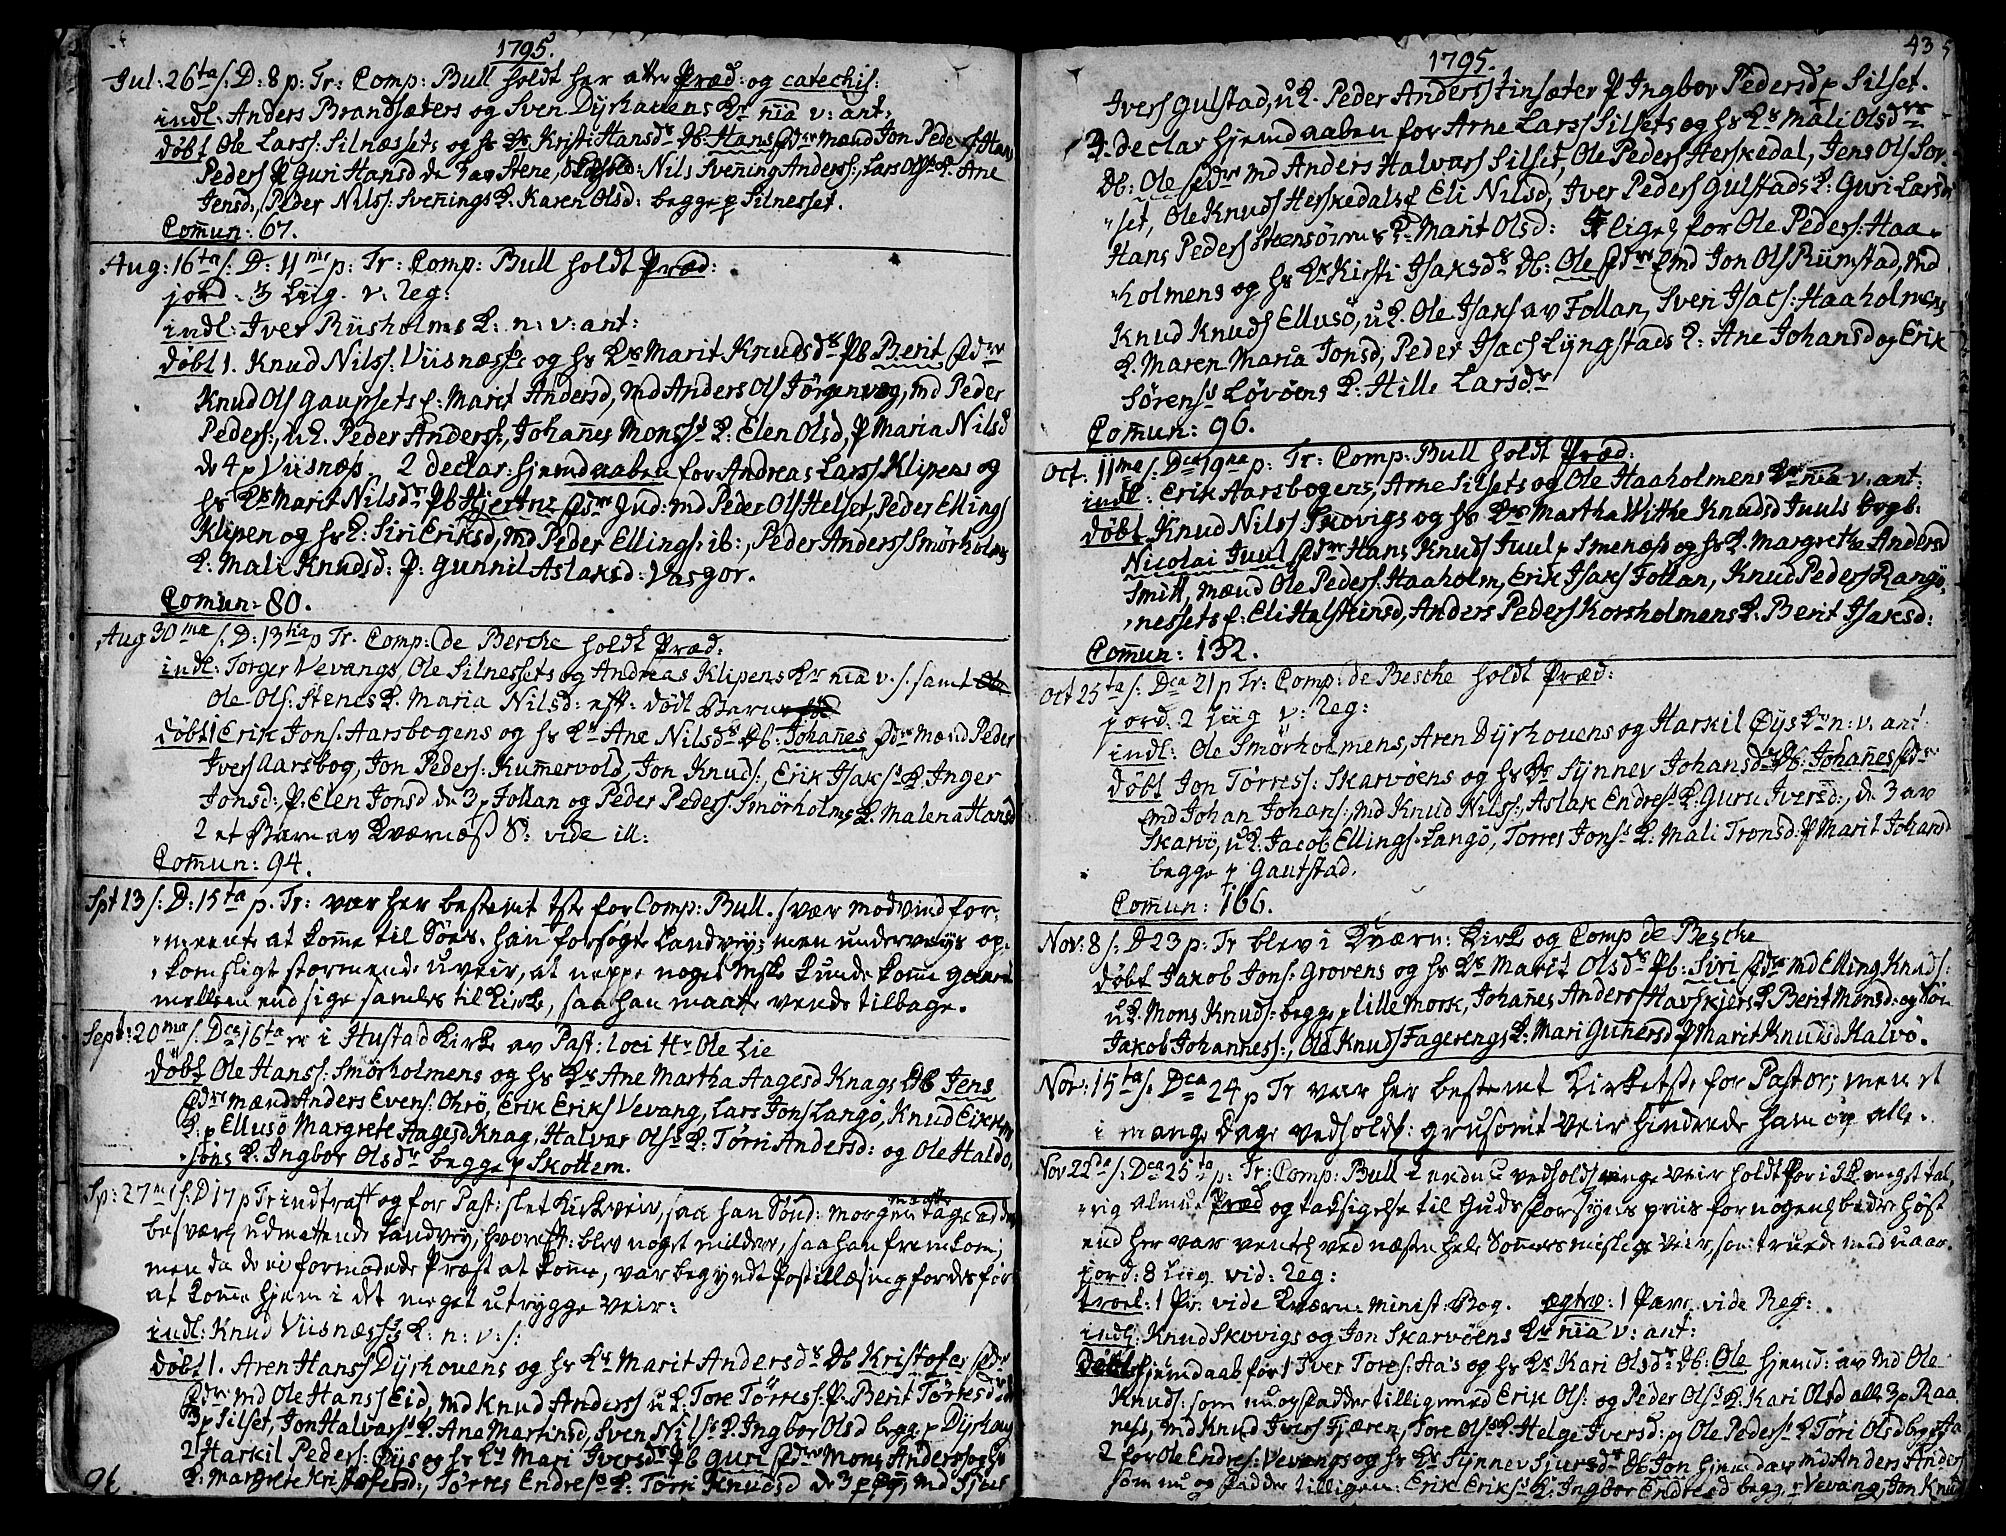 1795.
Jul: 26ta s: D: 8 p: Tr: Comp: Bull holdt her atter Præd: og catechis:
indl: Anders Brandsæters og Sven Dyrhauens Kr nia v: ant:
døbt Ole Larss: Silnæssets og hs Kr Kristi Hansdr Db: Hans mænd Jon Peders
Peders P Guri Hansd de av Stene, Nils Svenning Anderss:, Lars Ols K: Ane
Jensd:, Peder Nilss: Svenings K. Karen Olsd: begge p Silnesset.
Comun: 67.
Aug: 16ta s: D: 11me p: Tr: Comp: Bull holdt Præd:
jord. 3 Liig. v: Reg:
indl: Iver Riisholms K: n: v: ant:
døbt 1. Knud Nilss: Viisnæss og hs Kr Marit Knudsdr Pb Berit
Knud Ols Gaupsets f: Marit Andersd, md Anders Ols Jørgenvog, md Peder
Peders:, u K. Peder Anderss:, Johanes Monss K: Elen Olsd, P Maria Nilsd
de 4 p Viisnæs. 2 declar: hjemdaaben for Andreas Larss Klipens og
hs Kr Marit Nilsdr Pb Hjertne Gud: md Peder Ols Helset, Peder Ellings
Klipen og hs K: Siri Eriksd, md Peder Ellings: ib:, Peder Anderss Smörholms
K: Mali Knudsd: P. Gunnil Aslaksd: Vasgor.
Comun: 80.
Aug 30ma s: D: 13tia p Tr: Comp: de Besche holdt Præd:
indl: Torger Vevangs, Ole Silnessets og Andreas Klipens Kr nia v: s: samt
Ole Ols: Stenes K. Maria Nilsd: eft: død Barn
døbt 1 Erik Jons: Aarsbogens og hs Kr Ane Nilsdr Db: Johanes mænd Peder
Ivers Aarsbog, Jon Peders: Kumervold, Jon Knuds:, Erik Isaks K. Inger
Jonsd: P. Elen Jonsd de 3 p Follan og Peder Peders: Smörholms K. Malena Hansd
2 et Barn av Kværnæs S: vide ill:
Comun: 94.
Spt 13 s: D: 15ta p. Tr: var her bestemt for Comp: Bull. svær modvind for-
meente at kome til Søes. han forsøgte Landvey; men underveys op-
kom sligt stormende uveir, at neppe noget kunde kome gaard
mellem end sige samles til Kirke, saa han maatte vende tilbage.
Sept: 20ma s: Dca 16ta er i Hustad Kirke av Past: loci Hr Ole Lie
døbt Ole Hanss: Smörholmens og hs Kr Ane Martha Aagesd Knags Db Jens
mænd Anders Evens: Ohrö, Erik Eriks Vevang, Lars Jons Langö, Knud
K: p Ellusö Margrete Aagesd Knag, Halvar Ols K: Törri Andersd: og Ole Haldo
søns K: Ingbor Olsdr begge p Skottem.
Sp: 27 s: D 17 p Tr indtraff og for Past: slet Kirkeveir, saa han Sönd: morgen maatte tage
besværl udmattende Landvey, hvoreft: blev noget mildere, saa han fremkom;
men da de ei formodede Præst at kome, var begyndt Postillæsning for des før
at kome hjem i det meget utrygge Veir:
indl: Knud Viisnæss K: n: v: s:
døbt 1. Aren Hanss Dyrhouens og hs Kr Marit Andersdr Db Kristofer
md Ole Hanss Eid, md Knud Anders u K. Tore Törress: P. Berit Törresd
3 p Silset, Jon Halvars K. Ana Martinsd, Sven Nils K. Ingbor Olsd begge p Dyrhoug
2 Harkil Peders: Öys og hs Kr Mari Iversdr Pb Guri Mons Anderss og hs
K: Margrete Kristofersd:, Törres Endres K: Törri Knudsd de 3 p Öy, md Sjur
1795.
43
Ivers Gulstad, u K. Peder Anders Tinsæter P Ingbor Pedersd p Silset.
3. declar hjemdaaben for Arne Larss Silsets og hs Kr Mali Olsdr
Db: Ole md Anders Halvars Silset, Ole Peders Herskedal, Jens Ols Sor
set, Ole Knuds Herskedals f Eli Nilsd, Iver Peders Gulstads K: Guri Larsd
Hans Peders Steensörens K: Marit Olsd: lige for Ole Peders: Haa-
holmens og hs Kr Kirsti Isaksdr Db: Ole md Jon Ols Riimstad, md
Knud Knuds Ellusö, u K. Ole Isaks av Follan, Sven Isacs: Haaholmens
K. Maren Maria Jonsd; Peder Isacs Lyngstads K: Ane Johansd og Erik
Sörenss Lövöens K: Hille Larsdr
Comun: 96.
Oct: 11ma s: Dca 19na p: Tr: Comp: Bull holdt Præd:
indl: Erik Aarsbogens, Arne Silsets og Ole Haaholmens Kr nia v: ant:
døbt Knud Nilss: Skovigs og hs Kr Martha Withe Knudsd Juuls
Nicolai Juul Hans Knuds Juul p Smenæs og hs K. Margrethe Andersd
Smitt, mænd Ole Peders: Haaholm, Erik Isaks Follan, Knud Peders Rangö,
nessets f: Eli Halstensd, Anders Peders Korsholmens K. Berit Isaksd:
Comun: 132.
Oct 25ta s: Dca 21 p Tr: Comp: de Besche holdt Præd:
jord. 2 Liig v: Reg:
indl: Ole Smörholmens, Aren Dyrhouens og Harkil Öys Kr n: v: ant:
døbt Jon Törress: Skarvöens og hs Kr Synnev Johansdr Db: Johanes
md Johan Johans:, md Knud Nilss:, Aslak Endres K. Guru Iversd:, de 3 av
Skarvö, u K. Jacob Ellings: Langö, Torres Jons K. Mali Tronsd: P Marit Johansd
begge p Gautstad.
Comun: 166.
Nov: 8 s: D 23 p: Tr blev i Kværn: Kirke og Comp de Besche
døbt Jakob Jons: Grovens og hs Kr Marit Olsdr Pb: Siri md Elling Knuds:
u K. Mons Knuds: begge p lille Mork, Johanes Anders Havskjers K Berit Monsd: og Sön
Jakob Johaness:, Ole Knuds Fagerengs K: Mari Gunersd P Marit Knudsd Halvö.
Nov: 15ta s: Dca 24 p Tr var her bestemt Kirketst for Pastor; men et
i mange Dage vedhold: grusomt Veir hindrede ham og alle.
Nov 22da s: Dca 25ta p: Tr: Comp: Bull holdt for meget tal-
rig Almue Præd og taksigelse til Guds forsyns priis for nogenl bedre høst
end her var ventel ved næsten hele Sommers mislige Veir, som truede med uaar.
jord: 8 Liig vid: Reg:
troel: 1 Pr: vide Kværn: Minist: Bog. ægte: 1 Par vide Reg:
indl: Knud Skovigs og Jon Skarvöens Kr nia v: ant:
hjemdaab for 1 Iver Tores: Aas og hs Kr Kari Olsdr Db: Ole hjemd: av md Ole
Knuds: som nu og fadder tillige med Erik Ols: og Peder Ols K. Kari Olsd alle 3 p Raa
nes, md Knud Ivers Fjæren, Tore Ols K. Helge Iversd: og Ole Peders K Töri Olsd begge p Aa
2 for Ole Endres: Vevangs og hs Kr Synnev Siversdr Db Jon hjemd av md Anders Anders
som nu og fadder tilligem: Erik Eriks K: Ingbor Endresd begge p Vevang, Jon Knuds